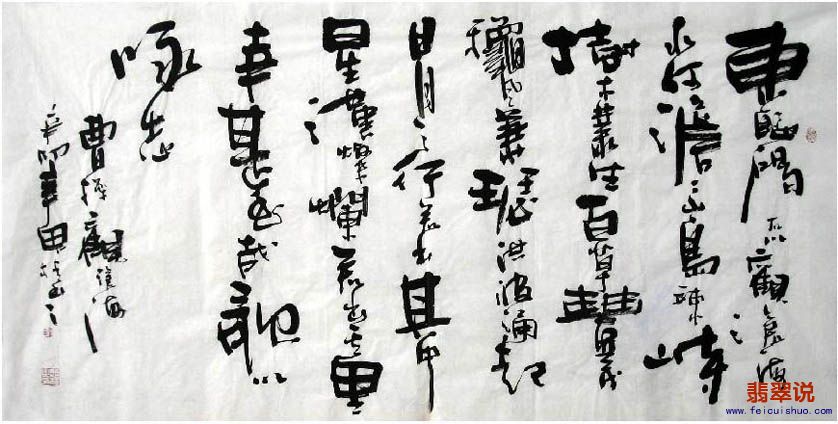 東臨碣石以觀滄海
水何澹澹山島竦峙
樹木叢生百草豐茂
穐風蕭瑟洪波涌起
日月之行若出其中
星漢燦爛若出其里
幸甚至哉歌以
咏志
曹操觀滄海
辛卯年田
翡翠说
www.feicuishuo.com